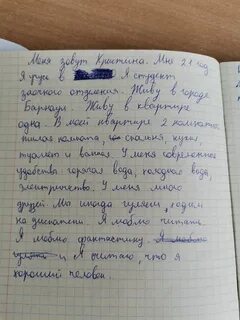 Меня зовут Кристина. Мне 21 год
Я учусь в Я студент
заочного отделения. Живу в городе
Барнаул. Живу в квартире
одна. В моей квартире 2 комнаты:
жилая комната, спальня, кухня,
туалет и ванная. У меня современное
удобства горячая вода, холодная вода,
электричество. У меня много
друзей Мы иногда гуляем, ходим
на дискотеки. Я люблю читать.
Я люблю фантастику.
и Я считаю, что я
хороший человек.